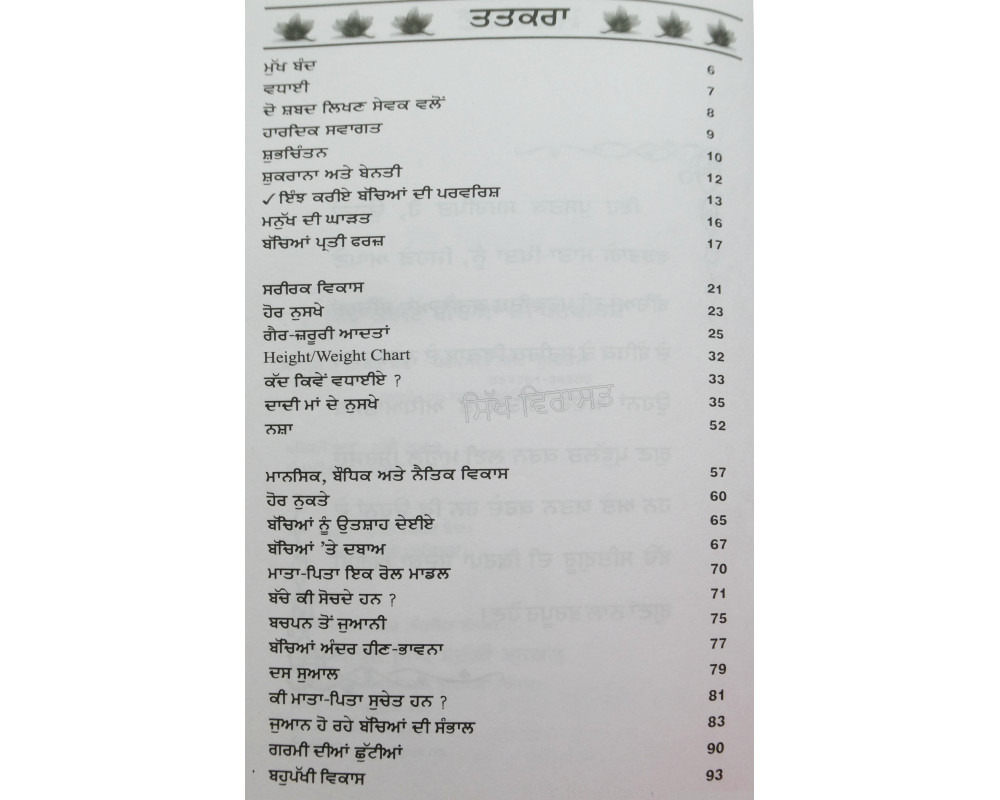 ਤਤਕਰਾ
ਮੁੱਖ ਬੰਦ 6
ਵਧਾਈ 7
ਦੋ ਸ਼ਬਦ ਲਿਖਣ ਸੇਵਕ ਵਲੋਂ 8
ਹਾਰਦਿਕ ਸਵਾਗਤ 9
ਸ਼ੁਭਚਿੰਤਨ 10
ਸ਼ੁਕਰਾਨਾ ਅਤੇ ਬੇਨਤੀ 12
✓ਇੰਝ ਕਰੀਏ ਬੱਚਿਆਂ ਦੀ ਪਰਵਰਿਸ਼ 13
ਮਨੁੱਖ ਦੀ ਘਾੜਤ 16
ਬੱਚਿਆਂ ਪ੍ਰਤੀ ਫਰਜ਼ 17
ਸਰੀਰਕ ਵਿਕਾਸ 21
ਹੋਰ ਨੁਸਖੇ 23
ਗੈਰ-ਜ਼ਰੂਰੀ ਆਦਤਾਂ 25
Height/Weight Chart 32
ਕੱਦ ਕਿਵੇਂ ਵਧਾਈਏ ? 33
ਦਾਦੀ ਮਾਂ ਦੇ ਨੁਸਖੇ 35
ਸਿੱਖ ਵਿਰਾਸਤ
ਨਸ਼ਾ 52
ਮਾਨਸਿਕ, ਬੌਧਿਕ ਅਤੇ ਨੈਤਿਕ ਵਿਕਾਸ 57
ਹੋਰ ਨੁਕਤੇ 60
ਬੱਚਿਆਂ ਨੂੰ ਉਤਸ਼ਾਹ ਦੇਈਏ 65
ਬੱਚਿਆਂ ’ਤੇ ਦਬਾਅ 67
ਮਾਤਾ-ਪਿਤਾ ਇਕ ਰੋਲ ਮਾਡਲ 70
ਬੱਚੇ ਕੀ ਸੋਚਦੇ ਹਨ ? 71
ਬਚਪਨ ਤੋਂ ਜੁਆਨੀ 75
ਬੱਚਿਆਂ ਅੰਦਰ ਹੀਣ-ਭਾਵਨਾ 77
ਦਸ ਸੁਆਲ 79
ਕੀ ਮਾਤਾ-ਪਿਤਾ ਸੁਚੇਤ ਹਨ ? 81
ਜੁਆਨ ਹੋ ਰਹੇ ਬੱਚਿਆਂ ਦੀ ਸੰਭਾਲ 83
ਗਰਮੀ ਦੀਆਂ ਛੁੱਟੀਆਂ 90
ਬਹੁਪੱਖੀ ਵਿਕਾਸ 93